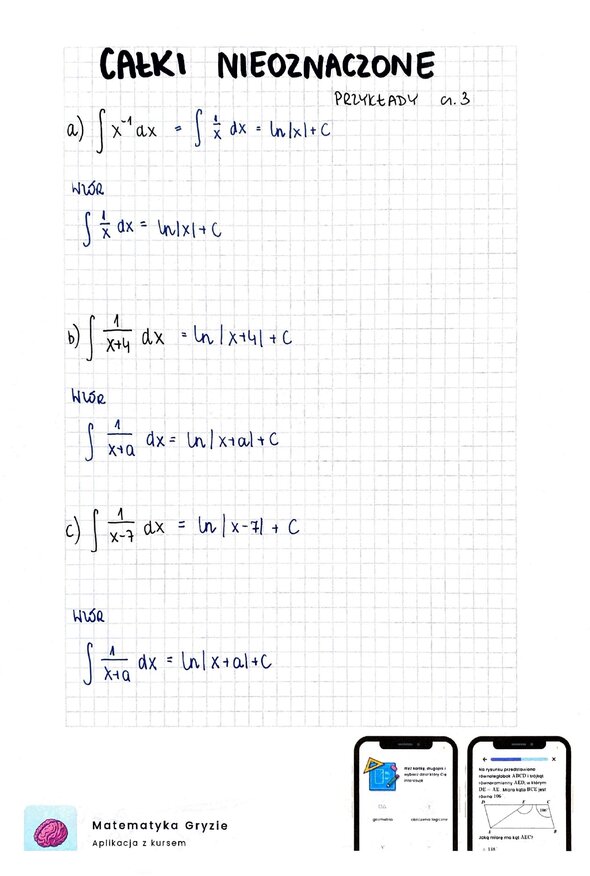 CAŁKI NIEOZNACZONE
PRZYKŁADY cz. 3
a) ∫ x⁻¹ dx = ∫ 1/x dx = ln|x| + C
WZÓR
∫ 1/x dx = ln|x| + C
b) ∫ 1/(x+4) dx = ln|x+4| + C
WZÓR
∫ 1/(x+a) dx = ln|x+a| + C
c) ∫ 1/(x-7) dx = ln|x-7| + C
WZÓR
∫ 1/(x+a) dx = ln|x+a| + C
Matematyka Gryzie
Aplikacja z kursem
wybierz dział który Cię
interesuje
geometria
Na rysunku przedstawiono
równoległobok ABCD i trójkąt
równoramienny AED, w którym
DE = AE. Miara kąta BCE jest
równa 106
D E C
A B
Jaką miarę ma kąt AEC?